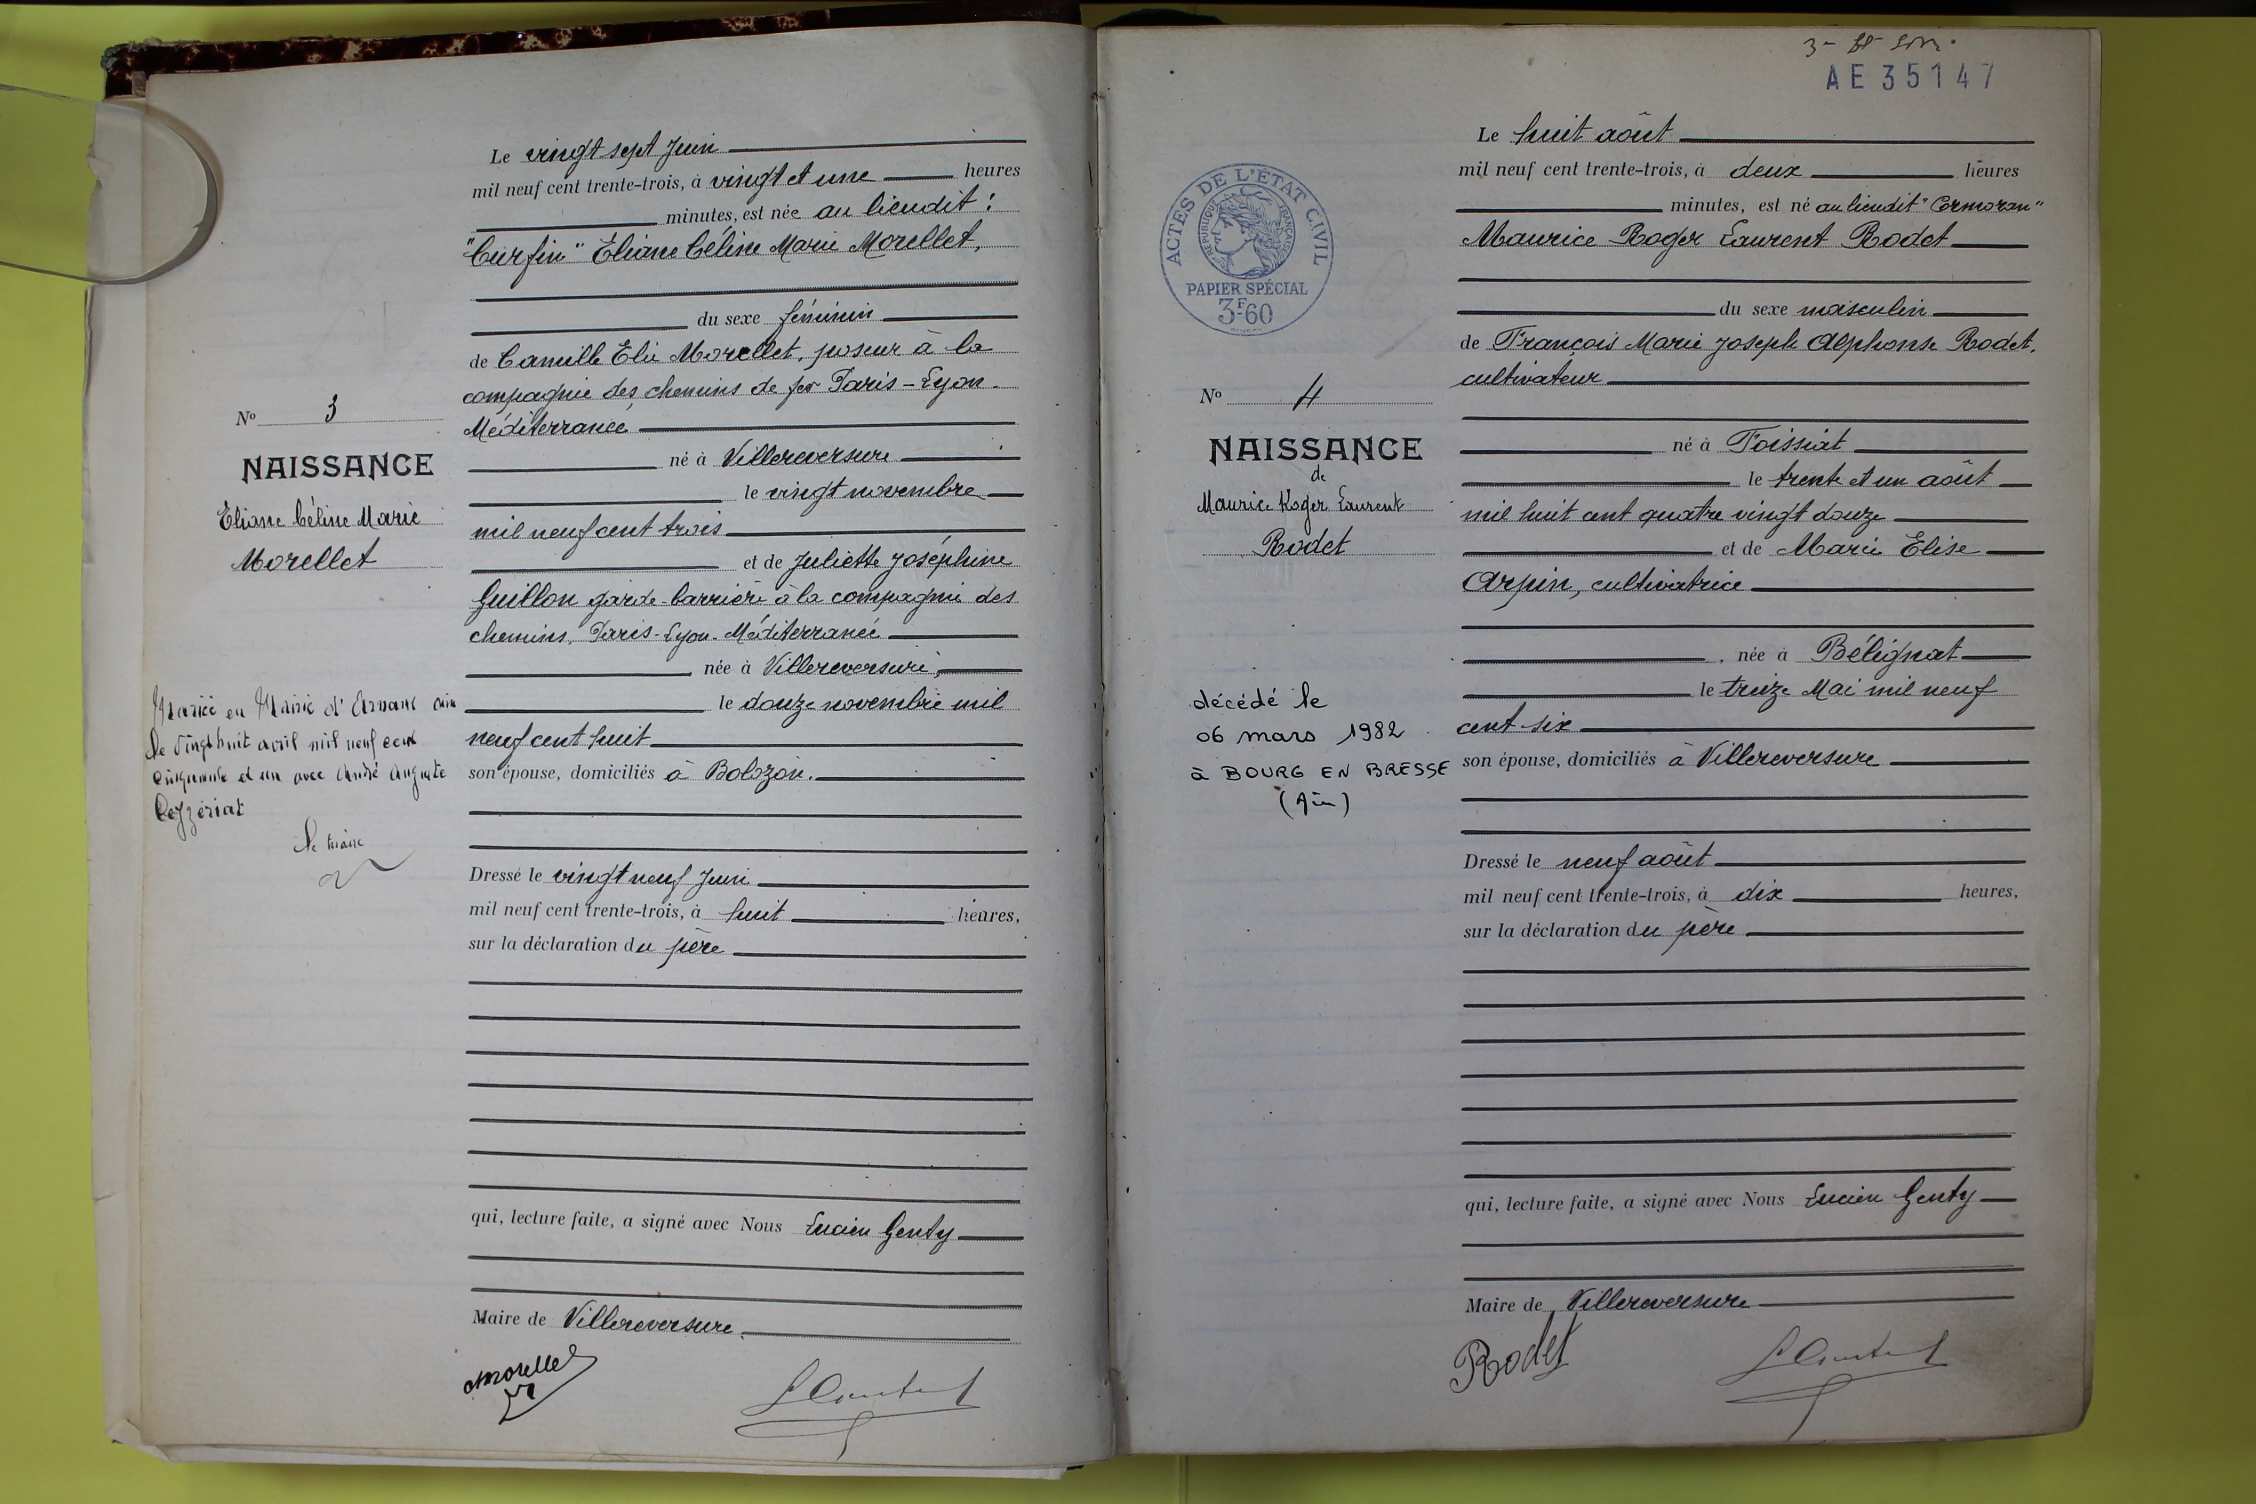 Le vingt sept Juin
mil neuf cent trente-trois, à vingt et une heures
minutes, est née au lieudit :
"Curfin" Éliane Céline Marie Morellet,
du sexe féminin
de Camille Élie Morellet, poseur à la
compagnie des chemins de fer Paris-Lyon-
Méditerranée
né à Villereversure
le vingt novembre
mil neuf cent trois
et de Juliette Joséphine
Guillon garde-barrière à la compagnie des
chemins, Paris-Lyon-Méditerranée
née à Villereversure,
le douze novembre mil
neuf cent huit
son épouse, domiciliés à Bolozon.
Dressé le vingt neuf Juin
mil neuf cent trente-trois, à huit heures,
sur la déclaration du père
qui, lecture faite, a signé avec Nous Lucien Genty
Maire de Villereversure.
Morellet
No 3
NAISSANCE
Eliane Céline Marie
Morellet
Mariée en Mairie d'Arnans Ain
le vingt huit avril mil neuf cent
cinquante et un avec André Auguste
Ceyzériat
le maire
AE 35147
ACTES DE L'ÉTAT CIVIL
RÉPUBLIQUE FRANÇAISE
PAPIER SPÉCIAL
3F60
No 4
NAISSANCE
de
Maurice Roger Laurent
Rodet
décédé le
06 mars 1982
à BOURG EN BRESSE
(Ain)
Le huit août
mil neuf cent trente-trois, à deux heures
minutes, est né au lieudit "Cormoran"
Maurice Roger Laurent Rodet
du sexe masculin
de François Marie Joseph Alphonse Rodet,
cultivateur
né à Foissiat
le trente et un août
mil huit cent quatre vingt douze
et de Marie Elise
Arpin, cultivatrice
née à Bélignat
le treize Mai mil neuf
cent six
son épouse, domiciliés à Villereversure
Dressé le neuf août
mil neuf cent trente-trois, à dix heures,
sur la déclaration du père
qui, lecture faite, a signé avec Nous Lucien Genty
Maire de Villereversure
Rodet